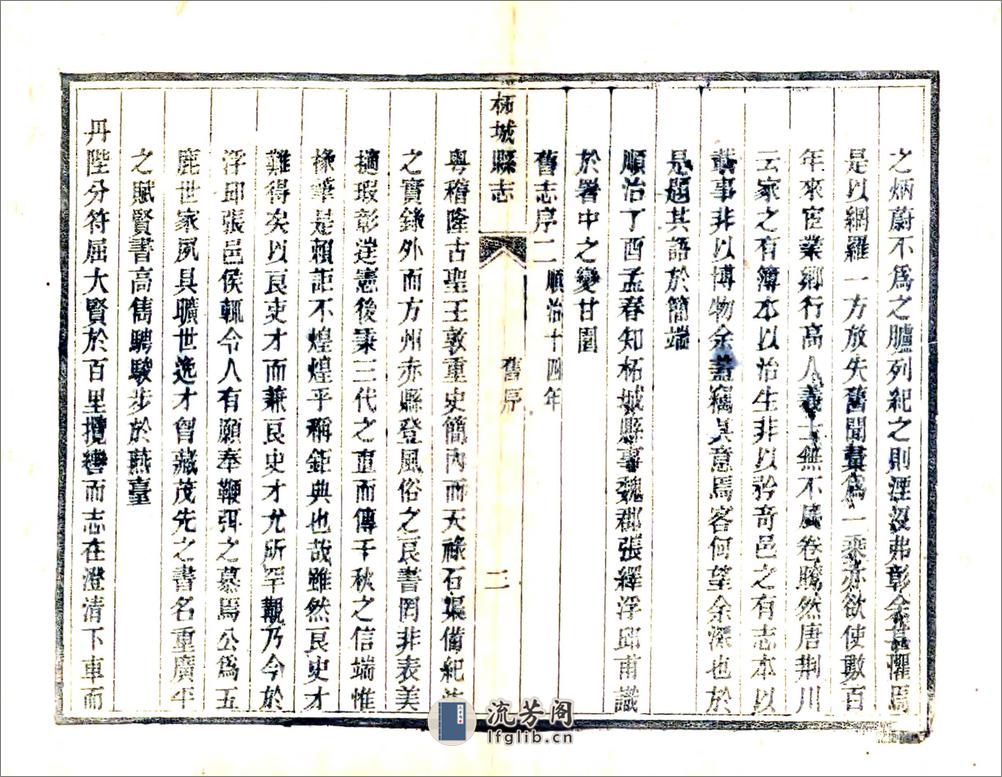 之炳蔚不爲之臚列紀之則湮沒弗彰余甚懼焉
是以網羅一方放失舊聞彙爲一乘亦欲使數百
年來宦業鄉行高人義士無不展卷賸然唐荆川
云家之有簿本以治生非以矜奇邑之有志本以
載事非以博物余蓋竊其意焉客何望余深也於
是題其語於簡端
順治丁酉孟春知柘城縣事魏郡張繹浮邱甫識
於署中之變甘園
舊志序二 順治十四年
柘城縣志 舊序 二
粤稽隆古聖王敦重史簡內而天祿石渠備紀
之實錄外而方州赤縣登風俗之良書罔非表美
擿瑕彰逹憲後秉三代之直而傳千秋之信端惟
椽筆是賴詎不煌煌乎稱鉅典也哉雖然良史才
難得矣以良吏才而兼良史才尤所罕觀乃今於
浮邱張邑侯輒令人有願奉鞭弭之慕焉公爲五
鹿世家夙具曠世逸才曾藏茂先之書名重廣平
之賦賢書高雋騁駿步於燕臺
丹陛分符屈大賢於百里攬轡而志在澄清下車而
流芳阁
lfglib.cn